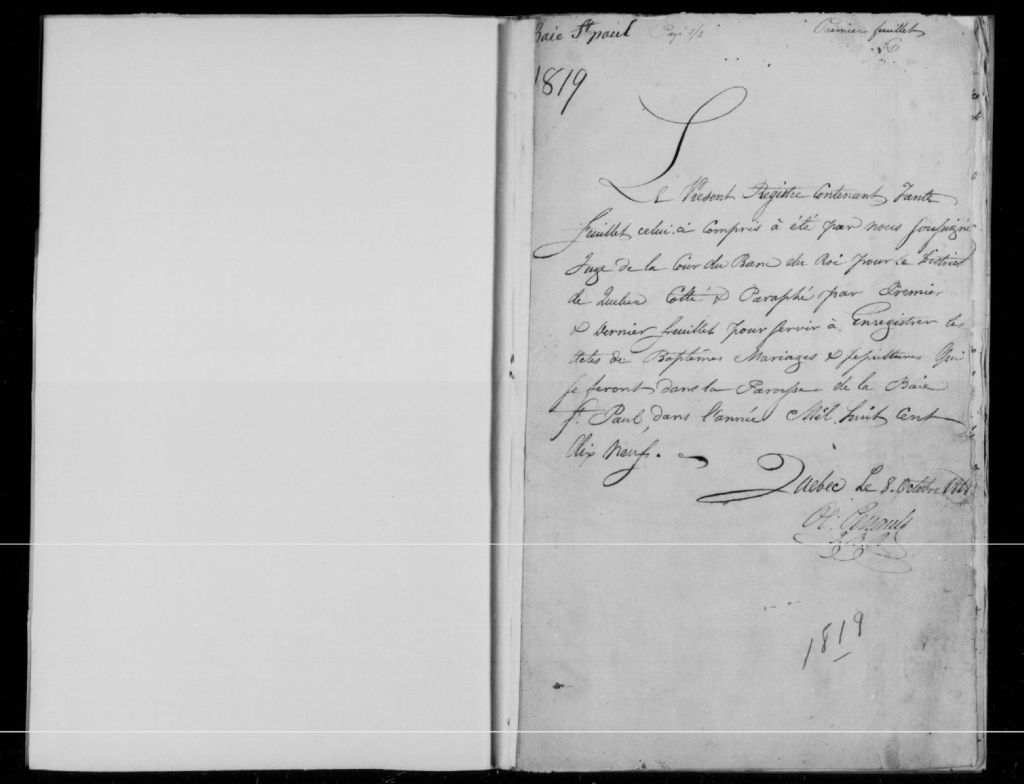 Baie St paul Payé 1/3 Premier feuillet
1819
Le Present Registre Contenant Trente
feuillet celui-ci Compris à été par nous soussigné
Juge de la Cour du Banc du Roi pour le District
de Quebec Cotté & Paraphé par Premier
& Dernier feuillet pour servir à Enregistrer les
Actes de Baptêmes Mariages & sepultures Qui
se feront dans la Paroisse de la Baie
St. Paul, dans l'année Mil huit Cent
dix Neuf.
Quebec Le 8. Octobre 1818
1819